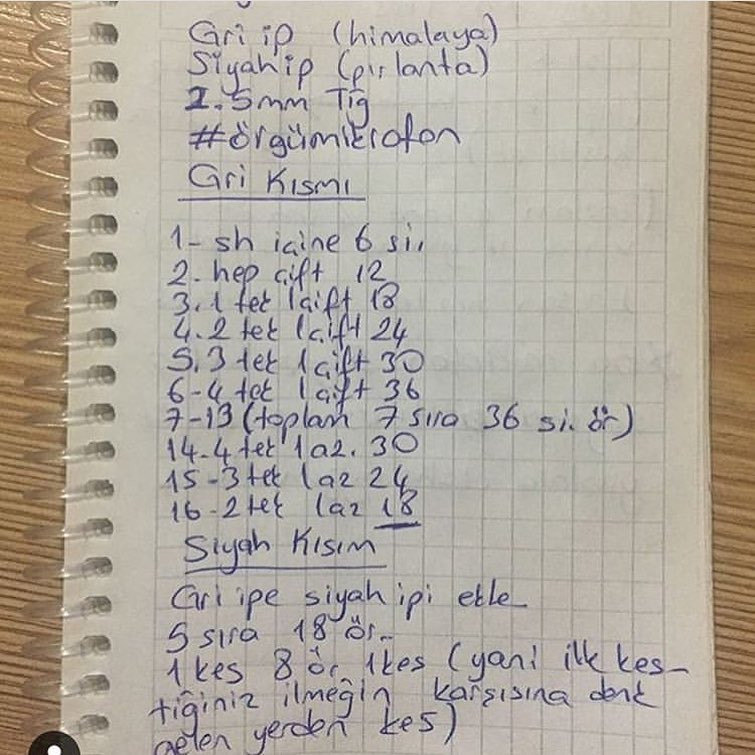 Gri ip (himalaya)
Siyah ip (pırlanta)
2.5mm Tığ
#örgümikrofon
Gri Kısmı
1- sh içine 6 si.
2. hep çift 12
3. 1 tek 1 çift 18
4. 2 tek 1 çift 24
5. 3 tek 1 çift 30
6-4 tek 1 çift 36
7-13 (toplam 7 sıra 36 si. ör)
14-4 tek 1 az. 30
15-3 tek 1 az 24
16-2 tek 1 az 18
Siyah Kısım
Gri ipe siyah ipi ekle
5 sıra 18 ör.
1 kes 8 ör, 1 kes (yani ilk kes-
tiğiniz ilmeğin karşısına denk
gelen yerden kes)